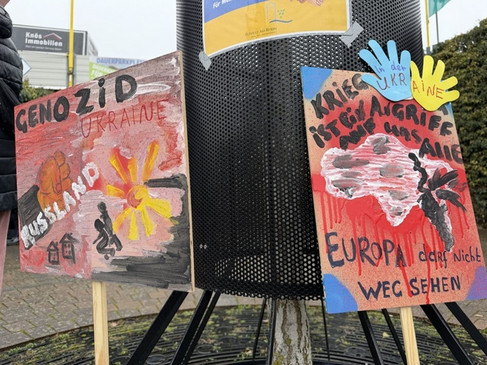 Knös
Immobilien
GENOZID
UKRAINE
RUSSLAND
KRIEG
in der
UKRAINE
IST EIN ANGRIFF
AUF UNS ALLE
EUROPA darf Nicht
WEG SEHEN